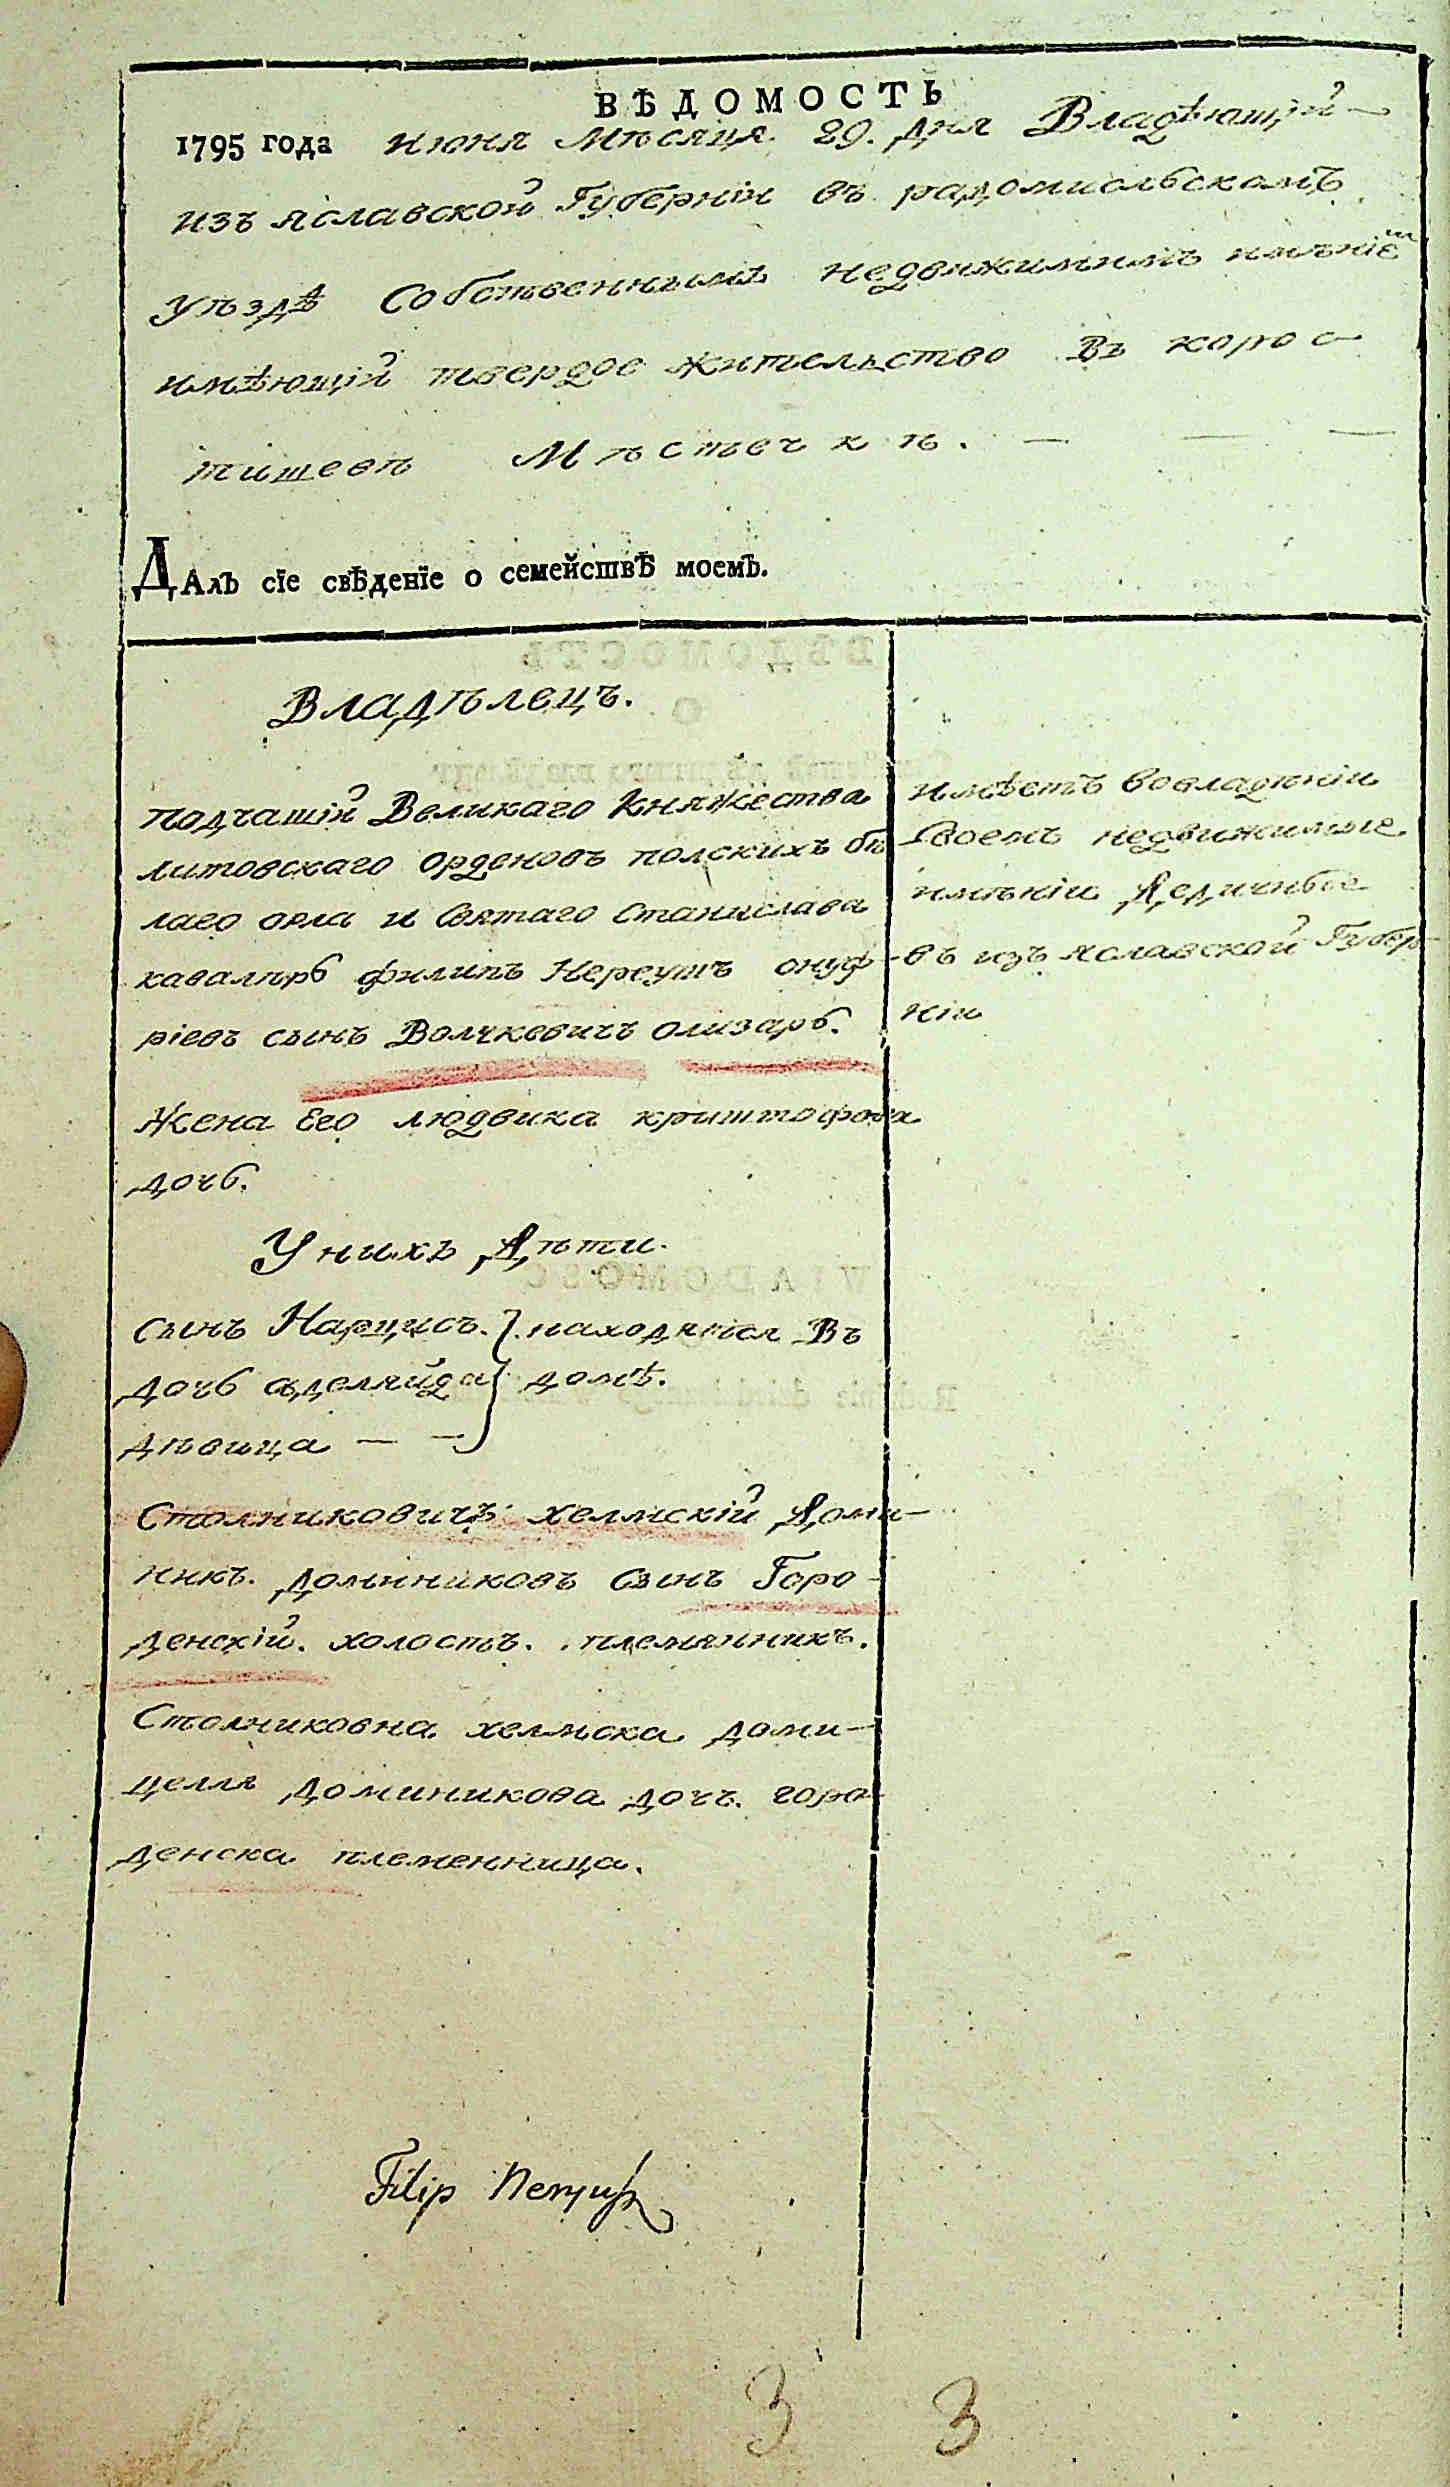 ВѢДОМОСТЬ
1795 года июня Мѣсяца 29. дня Владѣющій
изъ яславской Губерніи въ радомисльскомъ
уѣздѣ Собственнымъ недвижимимъ имѣніем
имѣющій твердое жительство Въ корос
тишевѣ Мѣстечкѣ. — — —
ДАлъ сїе свѣденїе о семействѢ моемЪ.
Владѣлецъ.
подчашій Великаго Княжества
литовскаго орденовъ полскихъ бѣ
лаго орла и Святаго Станислава
кавалѣрь филипъ Нереушъ онуф
ріевъ сынъ Волчкевичъ олизарь.
Жена Его людвика криштофова
дочь.
У нихъ Дѣти.
сынъ Нарцисъ. находятся Въ
дочь аделяйда домѣ.
дѣвица — —
Столниковичъ хелмскій Доми
никъ. доминиковъ сынъ Горо
денскій. холостъ. племянникъ.
Столниковна хелмска доми
целля доминикова дочъ. горо
денска племенница.
имѣетъ вовладѣніи
своемъ недвижимые
имѣніи Дедичные
въ изъ яславской Губер
ніи
Filip Neryusz
3 3